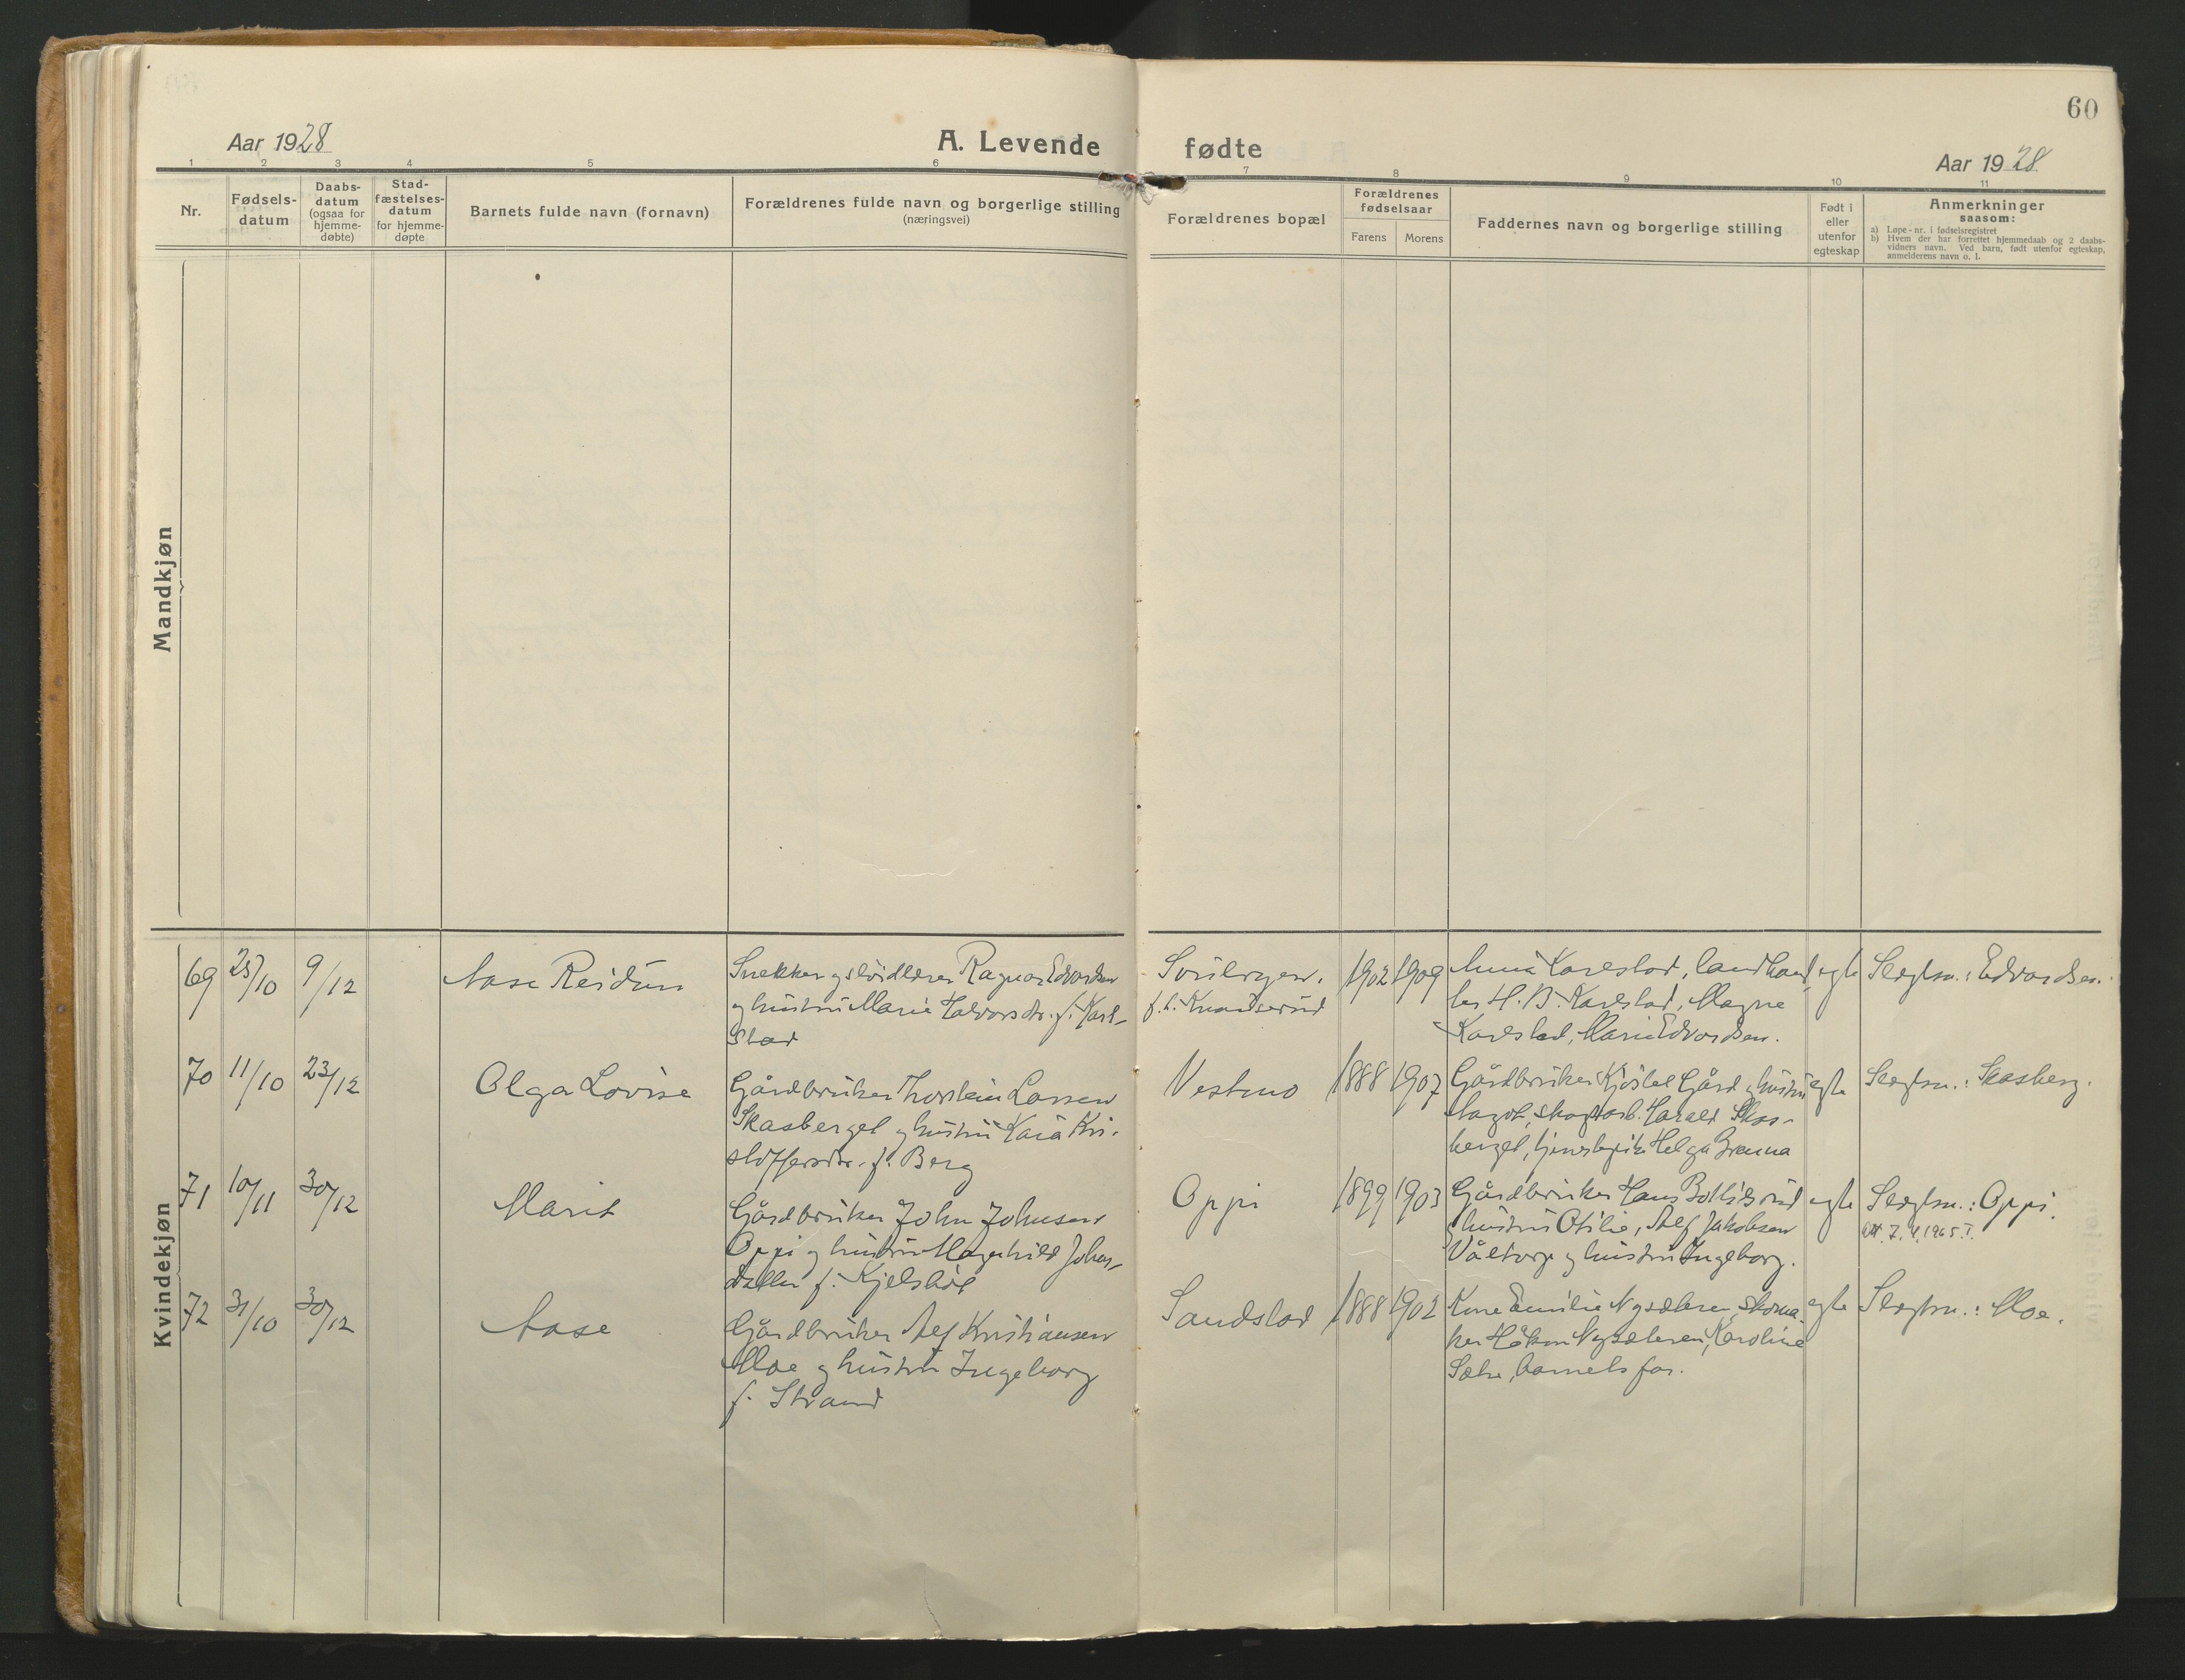 60
Aar 1928
A. Levende fødte
Aar 1928
1 2 3 4 5 6 7 8 9 10 11
Nr.
Fødsels-
datum
Daabs-
datum
(ogsaa for
hjemme-
døbte)
Stad-
fæstelses-
datum
for hjemme-
døpte
Barnets fulde navn (fornavn)
Forældrenes fulde navn og borgerlige stilling
(næringsvei)
Forældrenes bopæl
Forældrenes
fødselsaar
Farens Morens
Faddernes navn og borgerlige stilling
Født i
eller
utenfor
egteskap
Anmerkninger
saasom:
a) Løpe-nr. i fødselsregistret
b) Hvem der har forrettet hjemmedaab og 2 daabs-
vidners navn. Ved barn, født utenfor egteskap,
anmelderens navn o. l.
Mandkjøn
Kvindekjøn
69 25/10 9/12 Aase Reidun
Snekker og sløidlærer Ragnar Edvardsen
og hustru Marie Halvorsdtr. f. Karl-
stad
f.t. Knardserud
1902 1909
Anna Karlstad, landhand-
ler H. B. Karlstad, Magne
Karlstad, Marie Edvardsen.
egte
Slegtsn.: Edvardsen.
70 11/10 23/12 Olga Lovise
Gårdbruker Thorstein Larsen
Skasberget og hustru Kaia Kri-
stoffersdtr. f. Berg
Vestmo
1888 1907
Gårdbruker Kjøstel Gård og hustru
Magot, skogsarb. Harald Skas-
berget, tjenestepike Helga Grenna
egte
Slegtsn.: Skasberg.
71 10/11 30/12 Marit
Gårdbruker John Johnsen
Oppi og hustru Magnhild Johs-
datter f. Kjelsbøl
Oppi
1899 1903
Gårdbruker Hans Bottilsrud
og hustru Otilie, Alf Jakobsen
Våltorp og hustru Ingeborg.
egte
Slegtsn.: Oppi.
Att. 7.4.1965.
72 31/10 30/12 Aase
Gårdbruker Alf Kristiansen
Moe og hustru Ingeborg
f. Strand
Sandstad
1888 1902
Kone Emilie Nysæteren, skoma-
ker Håkon Nysæteren, Karoline
Sætre, barnets far.
egte
Slegtsn.: Moe.